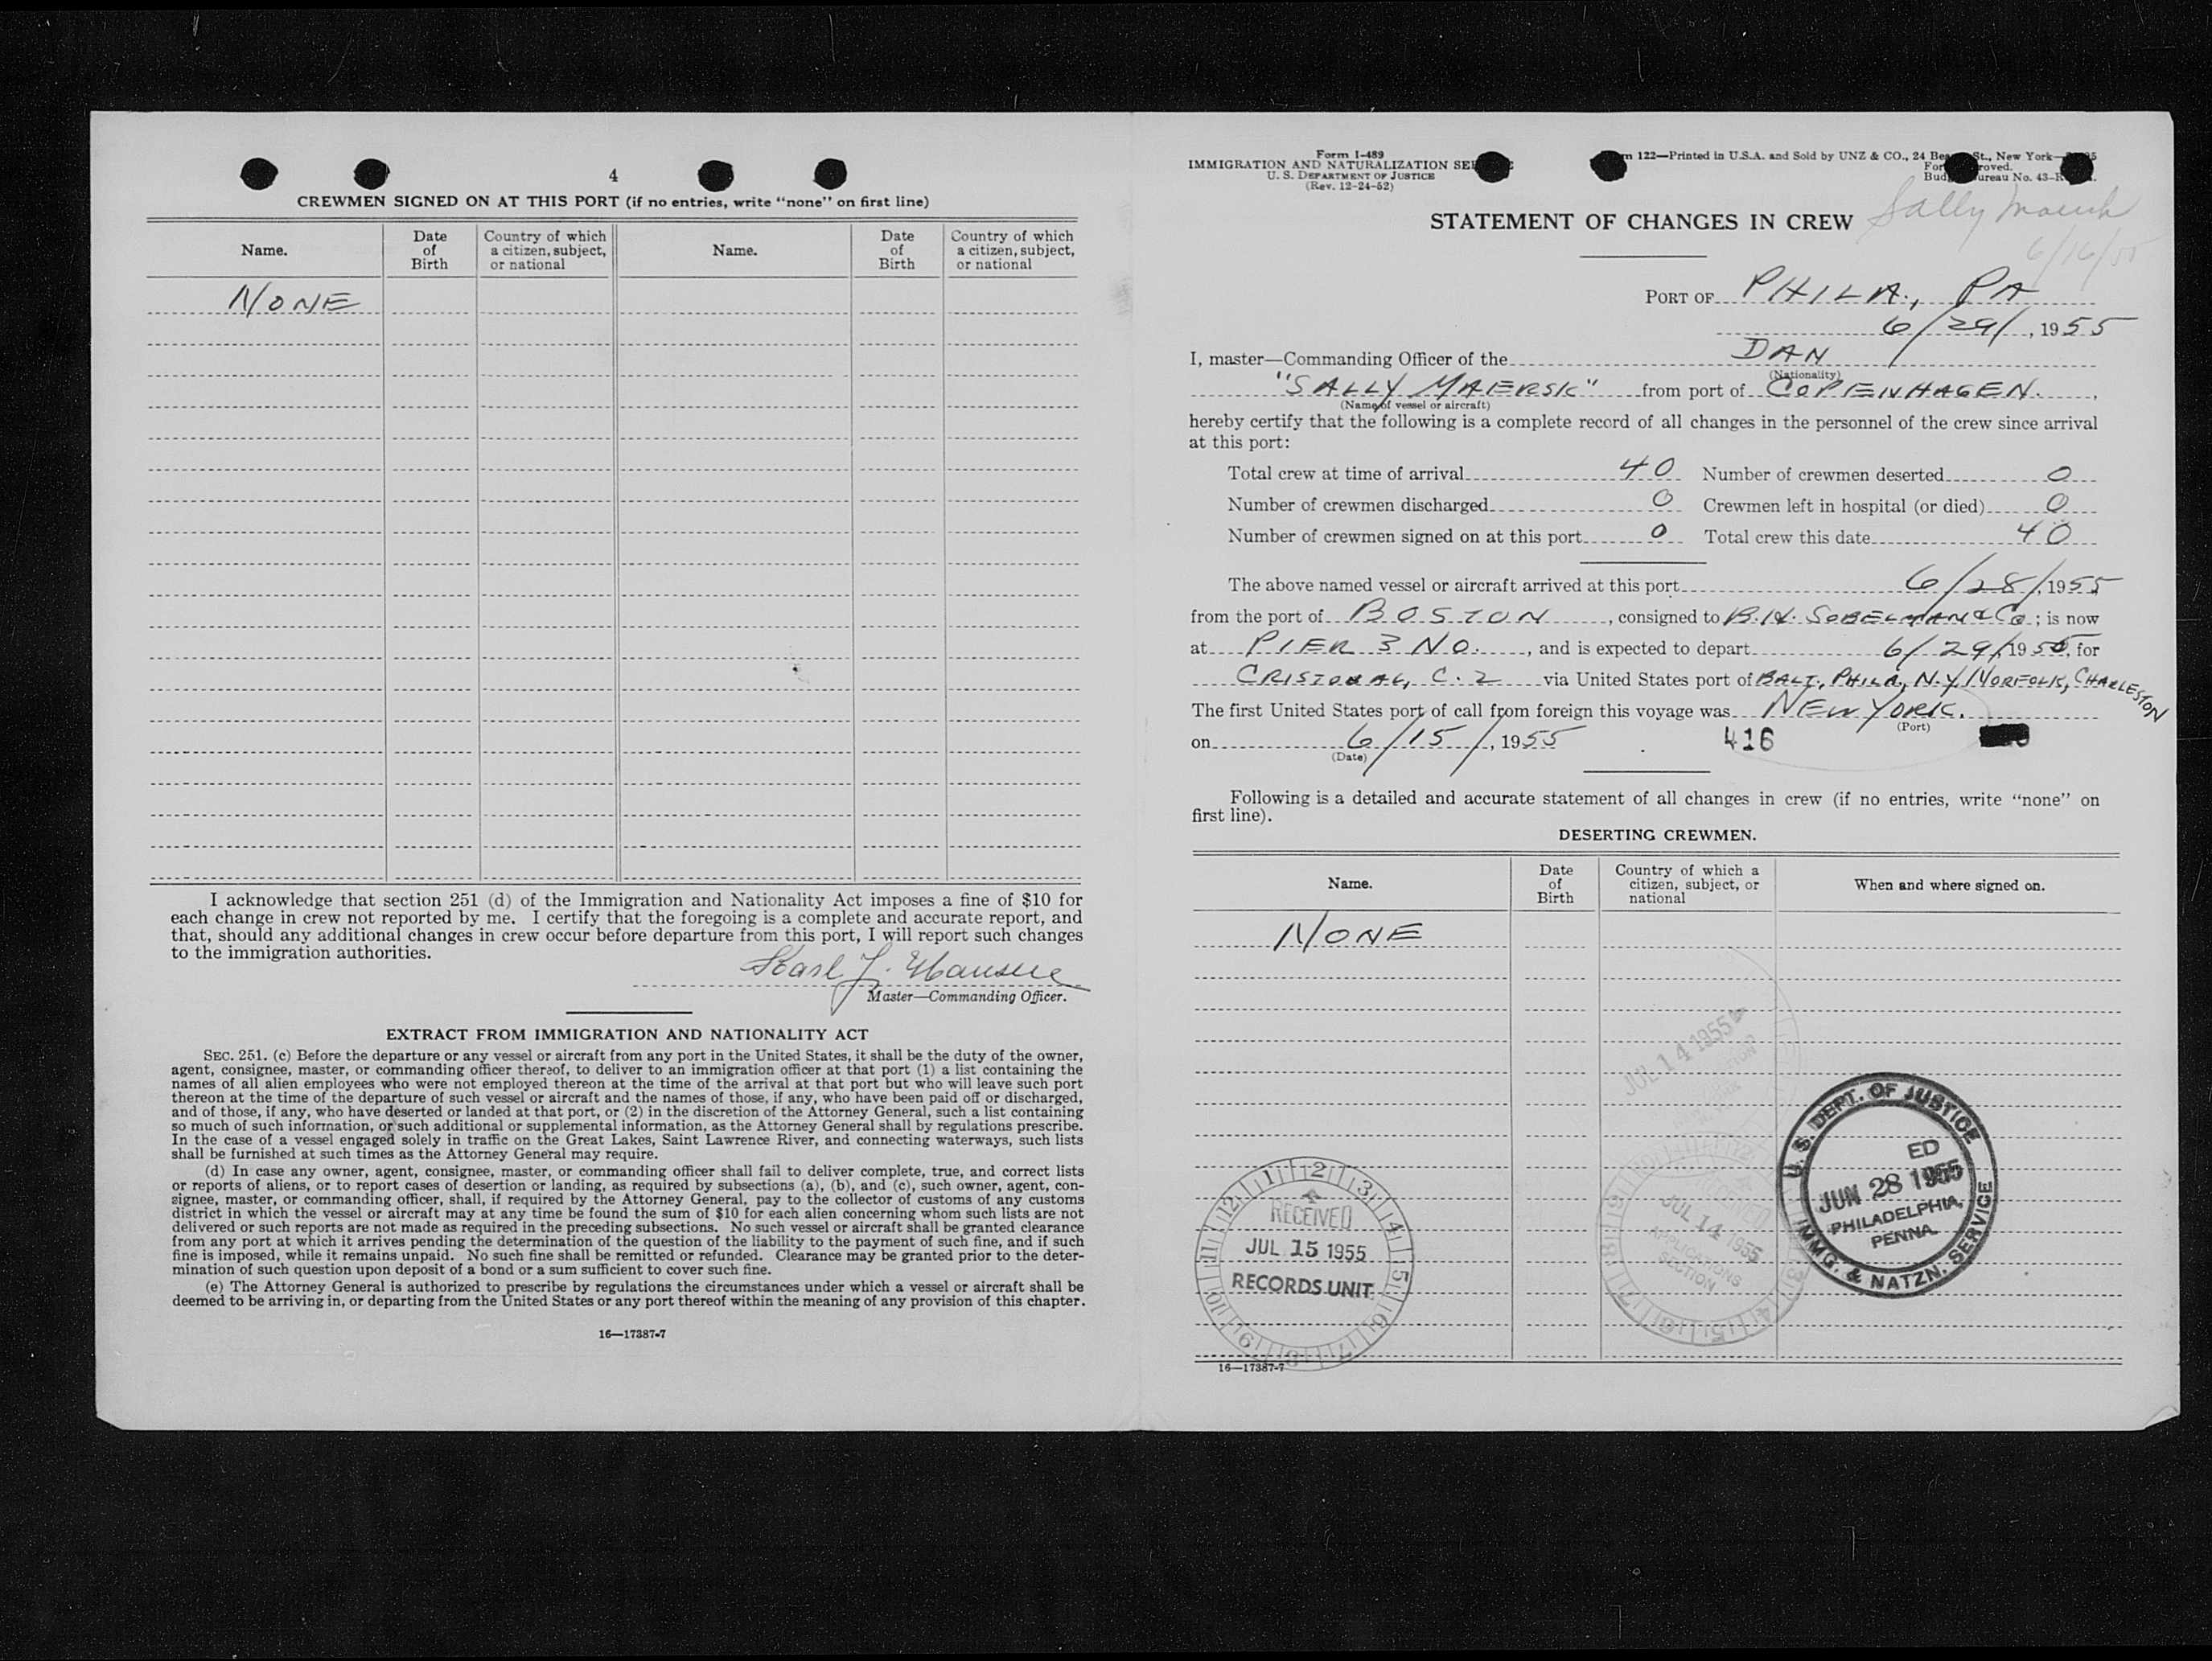 4
CREWMEN SIGNED ON AT THIS PORT (if no entries, write “none” on first line)
Name. Date of Birth Country of which a citizen, subject, or national Name. Date of Birth Country of which a citizen, subject, or national
NONE
I acknowledge that section 251 (d) of the Immigration and Nationality Act imposes a fine of $10 for
each change in crew not reported by me. I certify that the foregoing is a complete and accurate report, and
that, should any additional changes in crew occur before departure from this port, I will report such changes
to the immigration authorities.
Master—Commanding Officer.
EXTRACT FROM IMMIGRATION AND NATIONALITY ACT
SEC. 251. (c) Before the departure or any vessel or aircraft from any port in the United States, it shall be the duty of the owner,
agent, consignee, master, or commanding officer thereof, to deliver to an immigration officer at that port (1) a list containing the
names of all alien employees who were not employed thereon at the time of the arrival at that port but who will leave such port
thereon at the time of the departure of such vessel or aircraft and the names of those, if any, who have been paid off or discharged,
and of those, if any, who have deserted or landed at that port, or (2) in the discretion of the Attorney General, such a list containing
so much of such information, or such additional or supplemental information, as the Attorney General shall by regulations prescribe.
In the case of a vessel engaged solely in traffic on the Great Lakes, Saint Lawrence River, and connecting waterways, such lists
shall be furnished at such times as the Attorney General may require.
(d) In case any owner, agent, consignee, master, or commanding officer shall fail to deliver complete, true, and correct lists
or reports of aliens, or to report cases of desertion or landing, as required by subsections (a), (b), and (c), such owner, agent, con-
signee, master, or commanding officer, shall, if required by the Attorney General, pay to the collector of customs of any customs
district in which the vessel or aircraft may at any time be found the sum of $10 for each alien concerning whom such lists are not
delivered or such reports are not made as required in the preceding subsections. No such vessel or aircraft shall be granted clearance
from any port at which it arrives pending the determination of the question of the liability to the payment of such fine, and if such
fine is imposed, while it remains unpaid. No such fine shall be remitted or refunded. Clearance may be granted prior to the deter-
mination of such question upon deposit of a bond or a sum sufficient to cover such fine.
(e) The Attorney General is authorized to prescribe by regulations the circumstances under which a vessel or aircraft shall be
deemed to be arriving in, or departing from the United States or any port thereof within the meaning of any provision of this chapter.
16—17387-7
Form I-489
IMMIGRATION AND NATURALIZATION
U. S. DEPARTMENT OF JUSTICE
(Rev. 12-24-52)
122—Printed in U.S.A. and Sold by UNZ & CO., 24 St., New York
No. 43-R
Sally
6/16/55
STATEMENT OF CHANGES IN CREW
PORT OF PHILA., PA
6/29/, 1955
I, master—Commanding Officer of the DAN
(Nationality)
"SALLY MAERSK" from port of COPENHAGEN.,
(Name of vessel or aircraft)
hereby certify that the following is a complete record of all changes in the personnel of the crew since arrival
at this port:
Total crew at time of arrival 40 Number of crewmen deserted 0
Number of crewmen discharged 0 Crewmen left in hospital (or died) 0
Number of crewmen signed on at this port 0 Total crew this date 40
The above named vessel or aircraft arrived at this port 6/28/, 1955
from the port of BOSTON, consigned to B.H. SOBELMAN & CO; is now
at PIER 3 NO., and is expected to depart 6/29/, 1955, for
CRISTOBAL, C.Z via United States port of BALT, PHILA, N.Y. NORFOLK, CHARLESTON
The first United States port of call from foreign this voyage was NEW YORK.
(Port)
on 6/15/, 1955 416
(Date)
Following is a detailed and accurate statement of all changes in crew (if no entries, write “none” on
first line).
DESERTING CREWMEN.
Name. Date of Birth Country of which a citizen, subject, or national When and where signed on.
NONE
JUL 14 1955
U. S. DEPT. OF JUSTICE
ED
JUN 28 1955
PHILADELPHIA,
PENNA.
IMMG. & NATZN. SERVICE
RECEIVED
JUL 15 1955
RECORDS UNIT
JUL 14 1955
APPLICATIONS
SECTION
16—17387-7